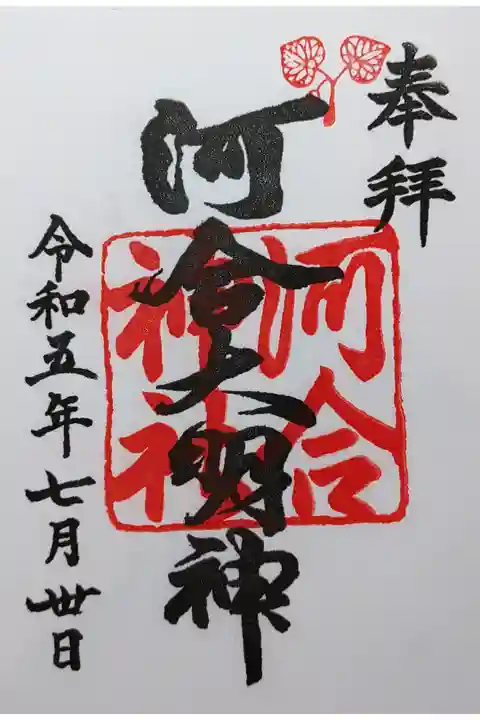 奉拝
河合大明神
河合
神社
令和五年七月卅日